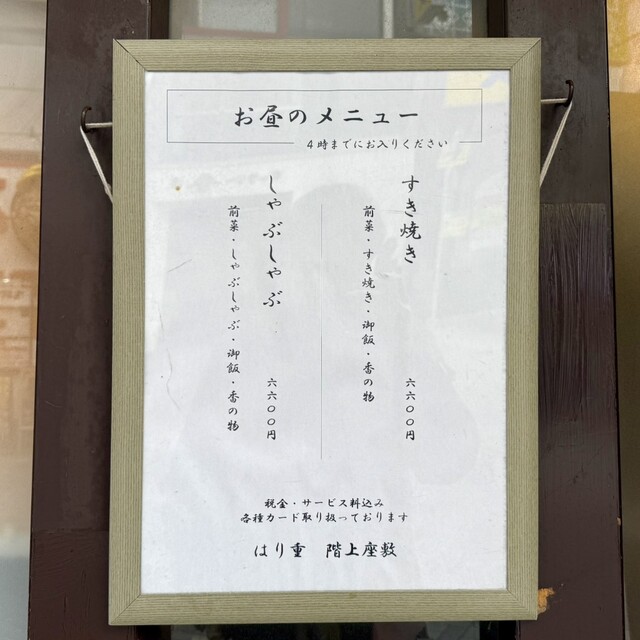 お昼のメニュー
4時までにお入りください
すき焼き
前菜・すき焼き・御飯・香の物
六六〇〇円
しゃぶしゃぶ
前菜・しゃぶしゃぶ・御飯・香の物
六六〇〇円
税金・サービス料込み
各種カード取り扱っております
はり重 階上座敷